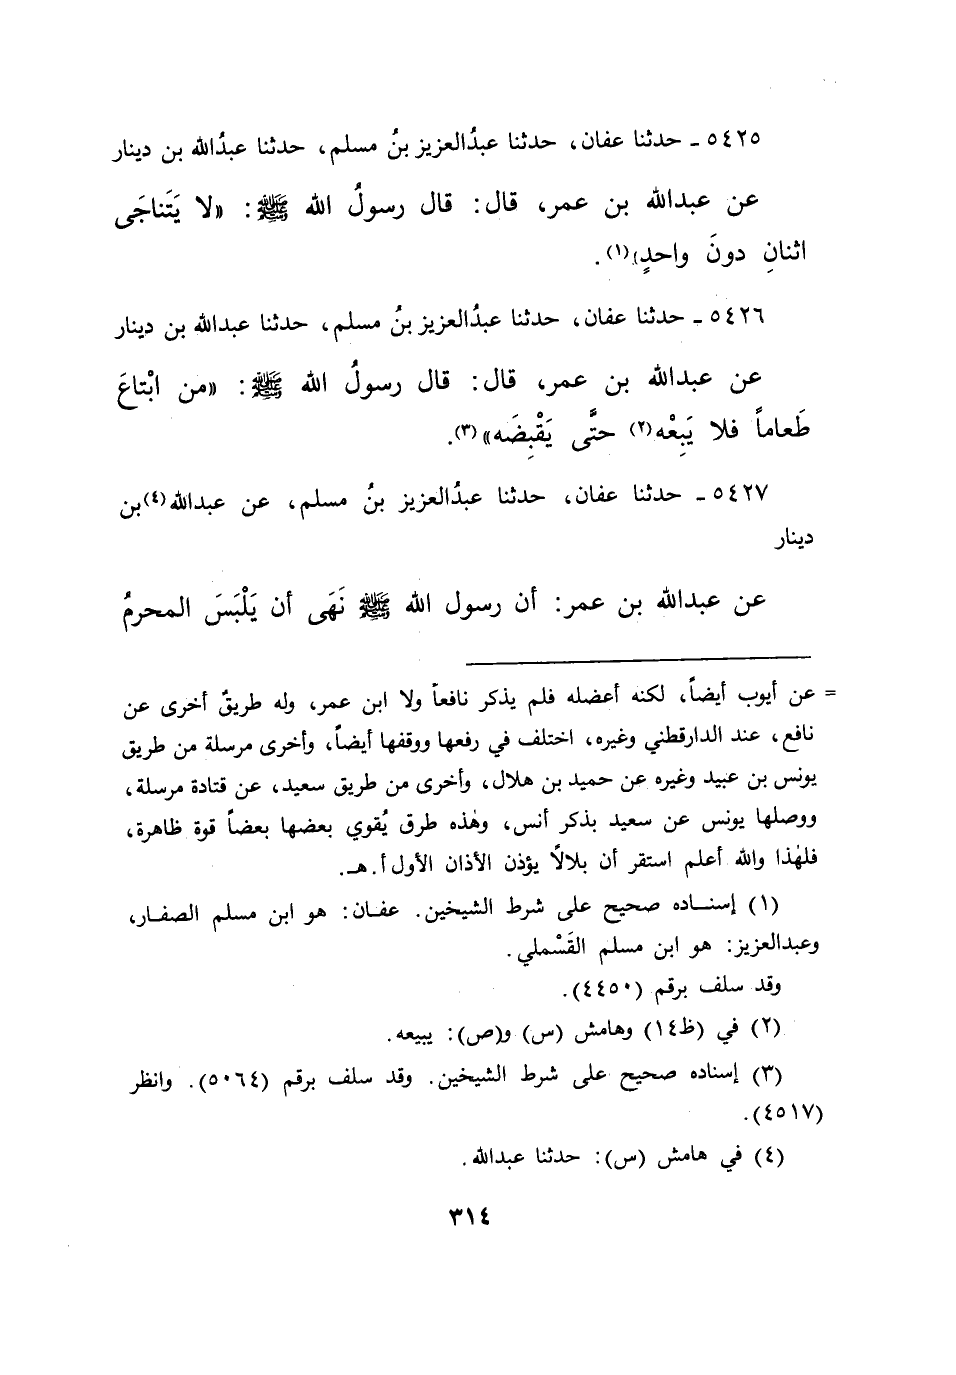 ٥٤٢٥ ـ حدثنا عفان، حدثنا عبدُالعزيز بنُ مسلم، حدثنا عبدُالله بن دينار
عن عبدالله بن عمر، قال: قال رسولُ الله ﷺ: «لا يَتَناجَى
اثنانِ دونَ واحدٍ»(١).
٥٤٢٦ ـ حدثنا عفان، حدثنا عبدُالعزيز بنُ مسلم، حدثنا عبدالله بن دينار
عن عبدالله بن عمر، قال: قال رسولُ الله ﷺ: «من ابْتاعَ
طَعاماً فلا يَبِعْه(٢) حتَّى يَقْبِضَه»(٣).
٥٤٢٧ ـ حدثنا عفان، حدثنا عبدُالعزيز بنُ مسلم، عن عبدالله(٤) بن
دينار
عن عبدالله بن عمر: أن رسول الله ﷺ نَهَى أن يَلْبَسَ المحرمُ
= عن أيوب أيضاً، لكنه أعضله فلم يذكر نافعاً ولا ابن عمر، وله طريقٌ أخرى عن
نافع، عند الدارقطني وغيره، اختلف في رفعها ووقفها أيضاً، وأخرى مرسلة من طريق
يونس بن عبيد وغيره عن حميد بن هلال، وأخرى من طريق سعيد، عن قتادة مرسلة،
ووصلها يونس عن سعيد بذكر أنس، وهٰذه طرق يُقوي بعضها بعضاً قوة ظاهرة،
فلهٰذا والله أعلم استقر أن بلالًا يؤذن الأذان الأول أ. هـ.
(١) إسنـاده صحيح على شرط الشيخين. عفـان: هو ابن مسلم الصفـار،
وعبدالعزيز: هو ابن مسلم القَسْملي.
وقد سلف برقم (٤٤٥٠).
(٢) في (ظ١٤) وهامش (س) و(ص): يبيعه.
(٣) إسناده صحيح على شرط الشيخين. وقد سلف برقم (٥٠٦٤). وانظر
(٤٥١٧).
(٤) في هامش (س): حدثنا عبدالله.
٣١٤